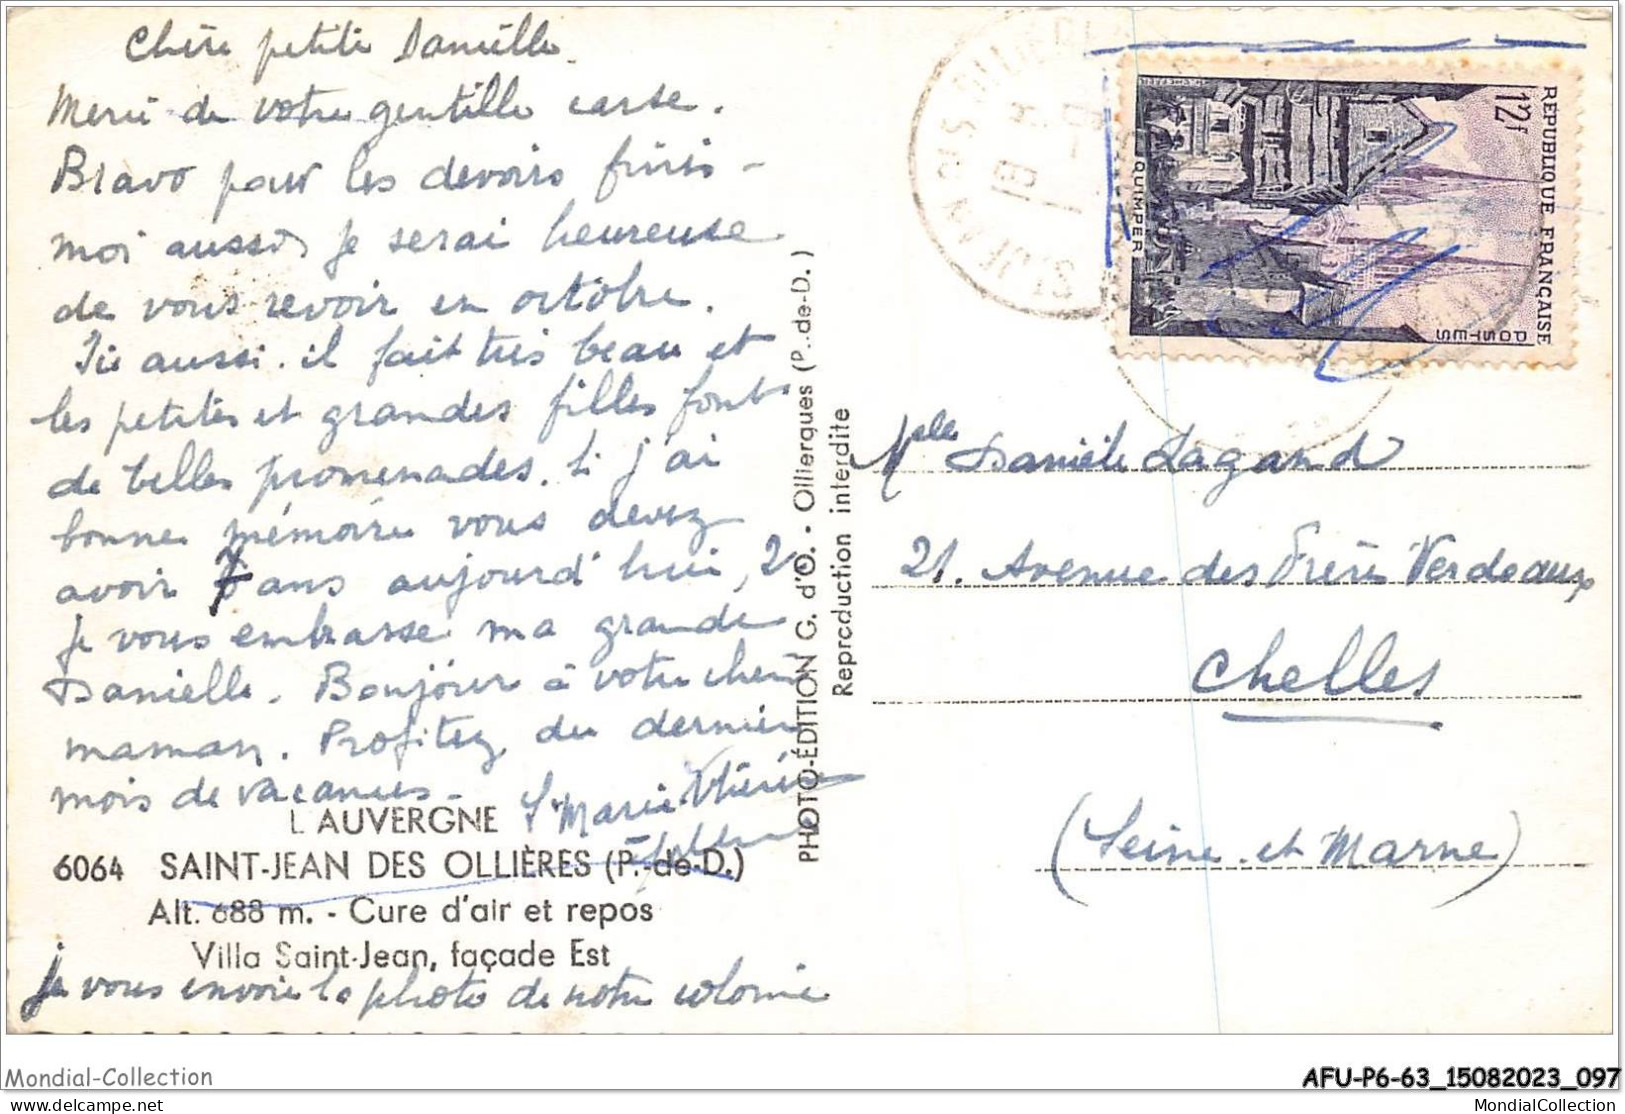 Chère petite Danielle
Merci de votre gentille carte.
Bravo pour les devoirs finis -
moi aussi je serai heureuse
de vous revoir en octobre.
Ici aussi il fait très beau et
les petites et grandes filles font
de belles promenades. Si j'ai
bonne mémoire vous devez
avoir 7 ans aujourd'hui,
je vous embrasse ma grande
Danielle. Bonjour à votre chère
maman. Profitez du dernier
mois de vacances -
Sr Marie
L'AUVERGNE
6064 SAINT-JEAN DES OLLIÈRES (P.-de-D.)
Alt. 688 m. - Cure d'air et repos
Villa Saint-Jean, façade Est
je vous envoie la photo de notre colonie
PHOTO-ÉDITION G. d'O. - Ollierques (P.-de-D.)
Reproduction interdite
12f
RÉPUBLIQUE FRANÇAISE
POSTES
QUIMPER
Melle Danièle Lagand
21. Avenue des Frères Verdeaux
Chelles
(Seine et Marne)
Mondial-Collection
AFU-P6-63_15082023_097
delcampe.net
MondialCollection